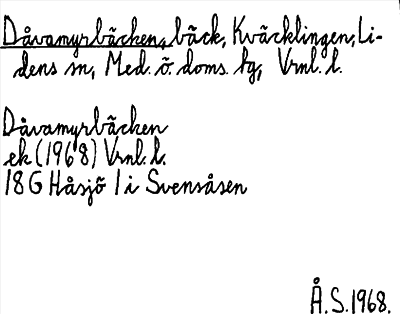 Dåvamyrbäcken, bäck, Kväcklingen, Li-
dens sn, Med. ö. doms. hg, Vrnl. l.
Dåvamyrbäcken
ek (1968) Vrnl. l.
18G Håsjö 1 i Svensåsen
Å.S. 1968.